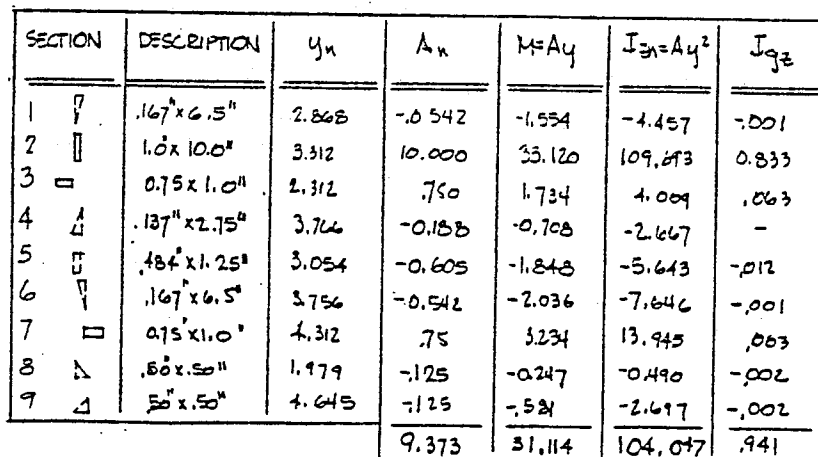 SECTION DESCRIPTION yn An M=Ay I≡n=Ay² Igz
1 .167"x6.5" 2.868 -.0542 -1.554 -4.457 -.001
2 1.0"x10.0" 3.312 10.000 33.120 109.693 0.833
3 0.75x1.0" 2.312 .750 1.734 4.009 .063
4 .137"x2.75" 3.766 -0.188 -0.708 -2.667 -
5 .484"x1.25" 3.054 -0.605 -1.848 -5.643 -.012
6 .167"x6.5" 3.756 -0.542 -2.036 -7.646 -.001
7 0.75"x1.0" 4.312 .75 3.234 13.945 .063
8 .50"x.50" 1.979 -.125 -0.247 -0.490 -.002
9 .50"x.50" 4.645 -.125 -.581 -2.697 -.002
9.373 31.114 104.047 .941